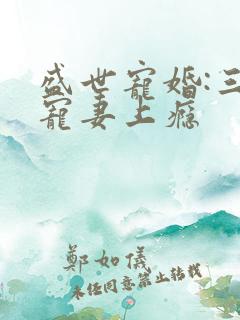 盛世寵婚:三
寵妻上癮
鄭如儀
未经同意禁止转载